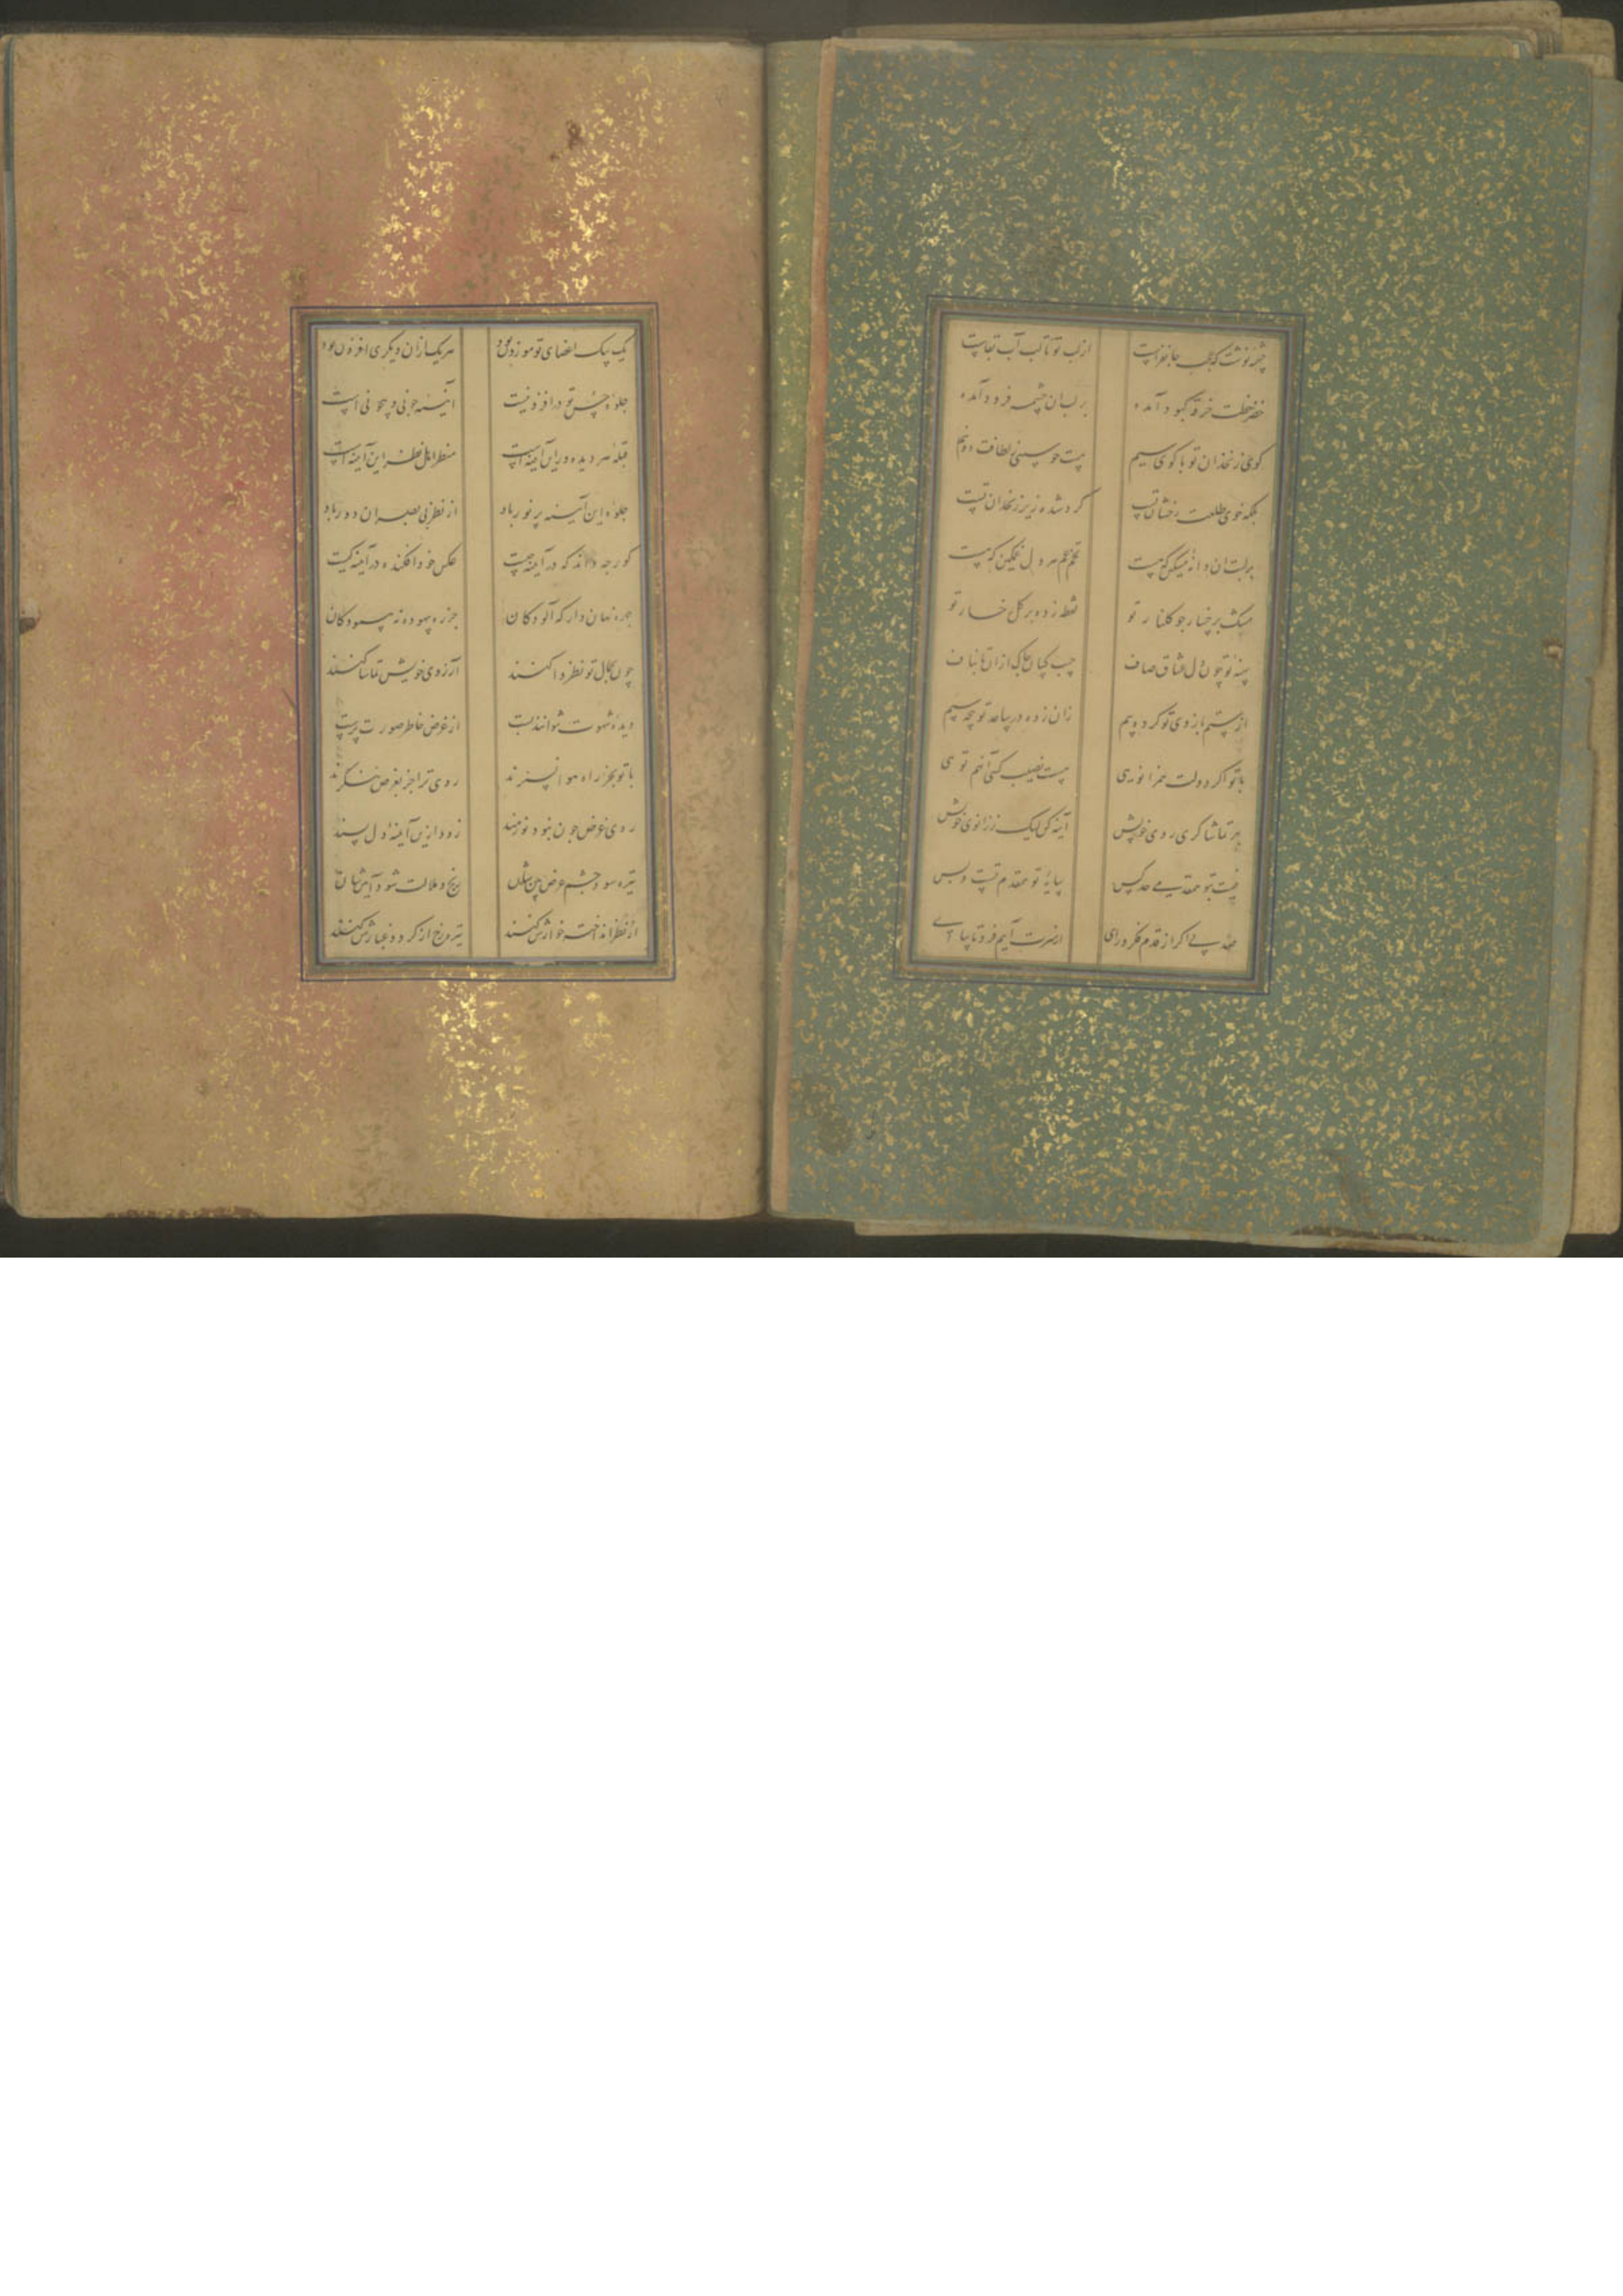 چشمه نوشت که عجب جانفزاست از لب تو تا لب آب بقاست
خضر خطت خرقه کبود آمده بر لب آن چشمه فرود آمده
گوی زنخدان تو با گوی سیم هست چو سیبی لطافت دو نیم
بلکه خوی طلعت رخشان تست گرد شده زیر زنخدان تست
بر لبت آن دانه مشکین که هست تخم غم هر دل غمگین که هست
مشک بر خسار چو گلنار تو نقطه زده بر گل رخسار تو
سینه تو چون دل عشاق صاف جیب چاک از ان تا بناف
از ستم بازوی تو کرده بیم زان زده در ساعد تو پنجه سیم
با تو اگر دولت همزانویی نیست نصیب کسی آنهم تویی
بهر تماشاگری روی خویش آینه کن لیک ز زانوی خویش
نیست بتو همقدمی حد کس سایه تو همقدم تست و بس
صد پی اگر از قدم فکر و رای از سرت آیم فرو تا بپای
یک بیک اعضای تو موزون بود هر یک از آن دیگری افزون بود
جلوه حسن تو در افزونیست آینه چونی و بیچونی است
قبله هر دیده ور این آینه است منظر اهل نظر این آینه است
جلوه این آینه پر نور باد از نظر بی بصران دور باد
کور چه داند که در آینه چیست عکس خود افکنده در آینه کیست
چهره نهان دار که آلودگان جز ره بیهوده نه پیمودگان
چون بجمال تو نظر وا کنند آرزوی خویش تماشا کنند
دیده شهوت نتوانند بست از غرض خاطر صورت پرست
با تو بجز راه هوا نسپرند روی ترا جز بغرض ننگرند
روی غرض چون بنبود نورمند زود ازین آینه دل پسند
تیره شود چشم غرض بین شان رنج و ملالت شود آیین شان
از نظر انداخته خوارش کنند تیره رخ از گرد و غبارش کنند